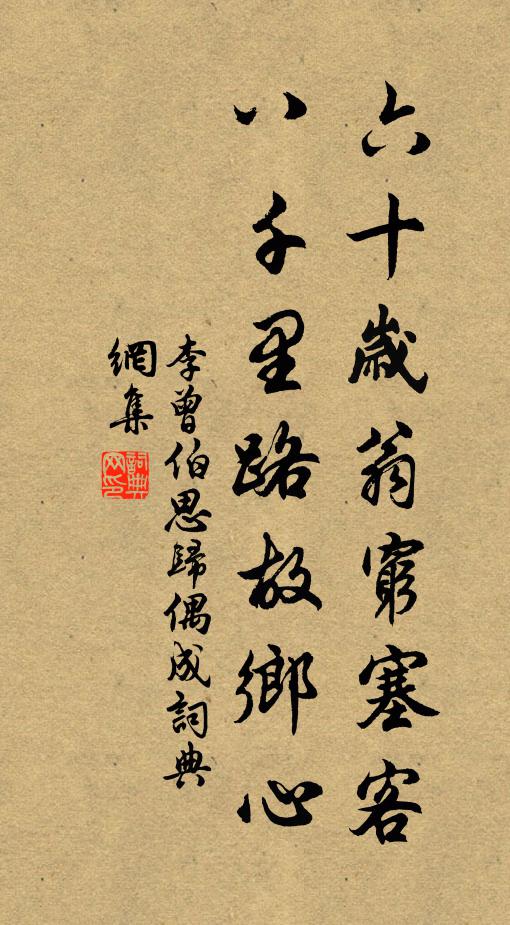 六十歲翁窮塞客
八千里路故鄉心
李曾伯思歸偶成詞典
網集
詞典
网印